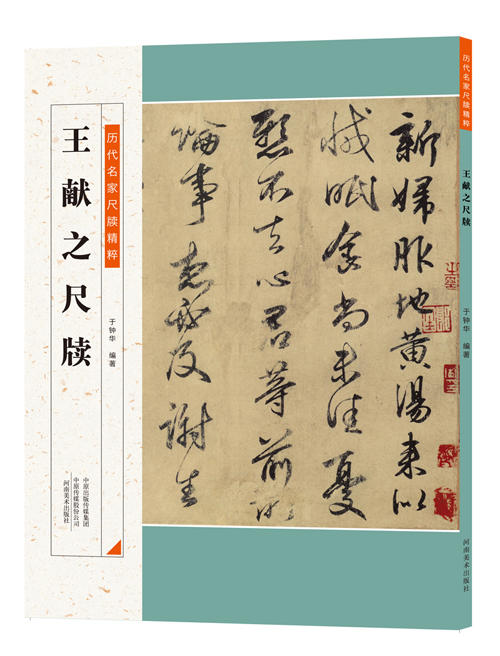 历代名家尺牍精粹
王献之尺牍
于钟华 编著
中原出版传媒集团
中原传媒股份公司
河南美术出版社
新婦服地黄湯来似
減眠食尚未佳憂
懸不去心君等前所
論事想必及謝生
历代名家尺牍精粹
王献之尺牍
于钟华 编著
河南美术出版社